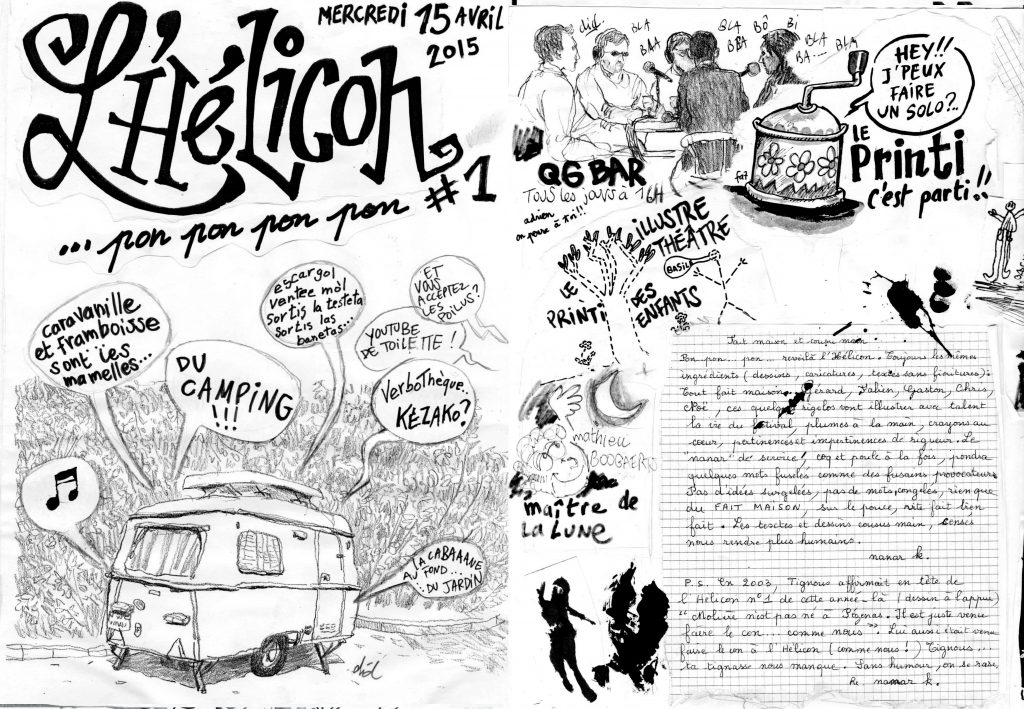 MERCREDI 15 AVRIL
2015
L'Hélicon
#1
... pon pon pon pon
caravanille
et framboisse
sont les
mamelles...
DU
CAMPING
!!!
escargol
ventre mòl
sortis la testeta
sortis las
banetas...
ET
VOUS
ACCEPTEZ
LES
POILUS?
YOUTUBE
DE TOILETTE!
Verbothèque.
KÉZAKO?
LA CABAAANE
AU
FOND...
...DU JARDIN
did.
BLA
BLA
BLA
BLA
BÔ
BI
BA...
BLA
BLA
HEY!!
J'PEUX
FAIRE
UN SOLO?..
LE
Printi
c'est parti!!
QG BAR
Tous les jours à 16H
adrien
on pense à toi!!
ILLUSTRE
THÉÂTRE
BASIL
LE
PRINTI
DES
ENFANTS
mathieu
BOOGAERTS
maître de
La Lune
Fait maison et cousu main
Pon pon... pon... revoilà l'Hélicon. Toujours les mêmes
ingrédients (dessins, caricatures, textes sans fioritures):
Tout fait maison. Gérard, Fabien, Gaston, Chris,
Chloé, ces quelques rigolos vont illustrer avec talent
la vie du festival, plumes à la main, crayons au
cœur, pertinences et impertinences de rigueur. Le
"nanar" de service, coq et poule à la fois, pondra
quelques mots fuselés comme des fusains provocateurs.
Pas d'idées surgelées, pas de mots congelés, rien que
du FAIT MAISON, sur le pouce, vite fait bien
fait. Les textes et dessins cousus main, censés
nous rendre plus humains.
nanar k.
P.S. En 2003, Tignous affirmait en tête de
l'Hélicon n°1 de cette année-là (dessin à l'appui)
"Molière n'est pas né à Pézenas. Il est juste venu
faire le con... comme nous". Lui aussi était venu
faire le con à l'Hélicon (comme nous!) Tignous...
ta tignasse nous manque. Sans humour, on se rase,
Re nanar k.